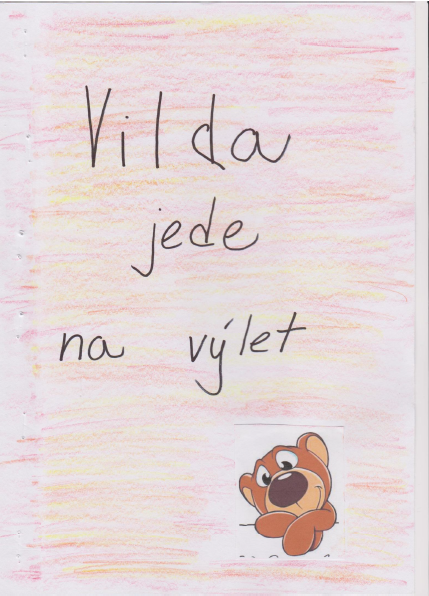 Vilda
jede
na výlet